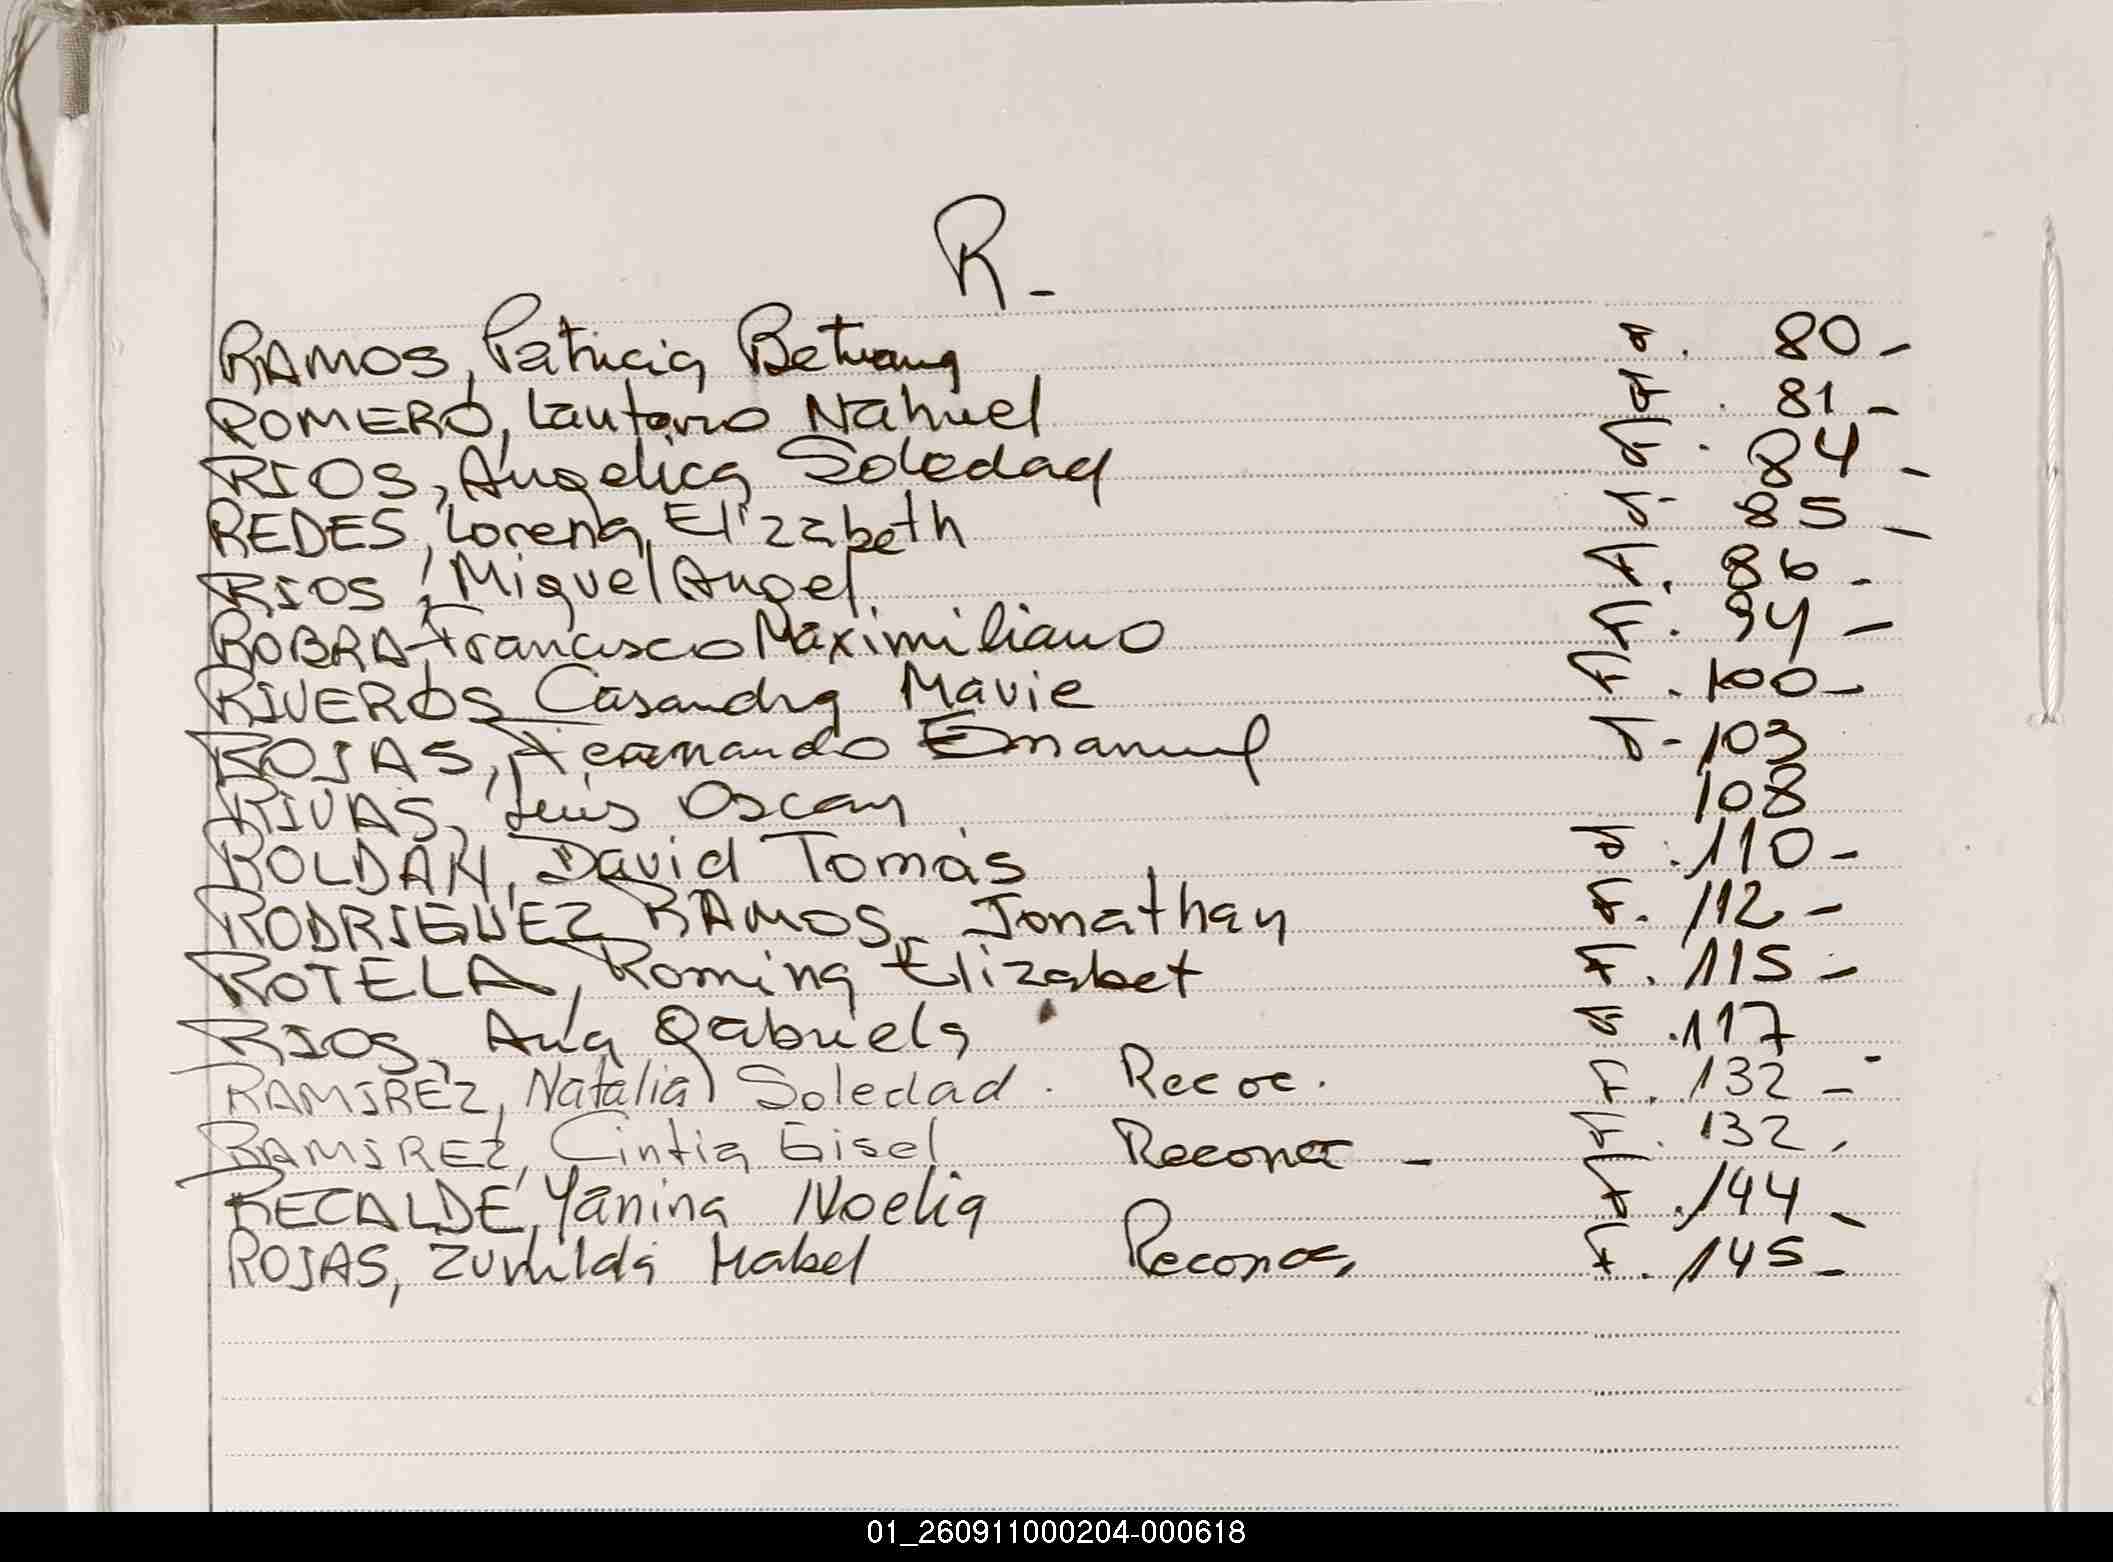 R-
RAMOS, Patricia Betuana F. 80-
ROMERO, Lautaro Nahuel F. 81-
RIOS, Angelica Soledad F. 84-
REDES, Lorena Elizabeth F- 85-
RIOS, Miguel Angel. F. 86-
ROBRA, Francisco Maximiliano F. 94-
RIVEROS Casandra Mavie F. 100-
ROJAS, Fernando Emanuel F- 103
RIVAS, Luis Oscar 108
ROLDAN, David Tomás F. 110-
RODRIGUEZ RAMOS, Jonathan F. 112-
ROTELA, Romina Elizabet F. 115-
RIOS, Ana Gabriela F. 117-
RAMIREZ, Natalia Soledad. Recoc. F. 132-
RAMIREZ, Cintia Gisel. Reconoc - F. 132.
RECALDE, Yanina Noelia F. 144-
ROJAS, Mabel Reconoc, F. 145-
01_260911000204-000618